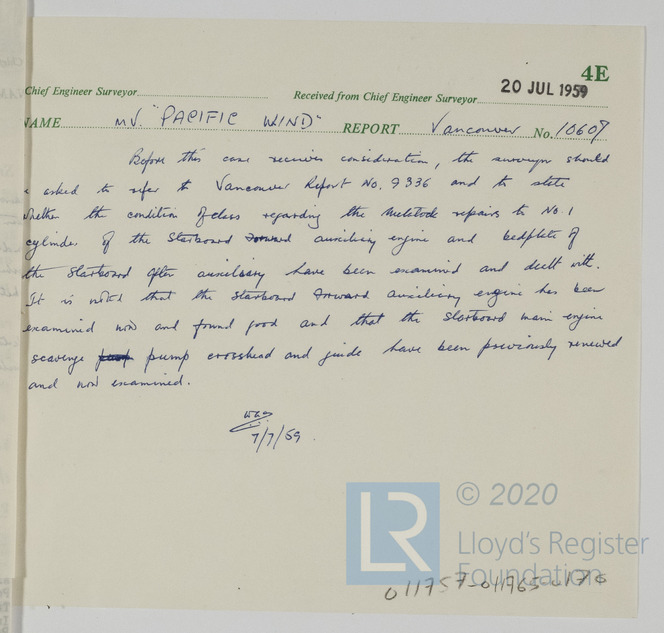 4E
20 JUL 1959
Chief Engineer Surveyor
Received from Chief Engineer Surveyor
NAME MV. "PACIFIC WIND" REPORT Vancouver No. 10609
Before this case receives consideration, the surveyor should
be asked to refer to Vancouver Report No. 9336 and to state
whether the condition of class regarding the Metalock repairs to No. 1
cylinder of the Starboard Forward auxiliary engine and bedplate of
the Starboard after auxiliary have been examined and dealt with.
It is noted that the Starboard Forward auxiliary engine has been
examined now and found good and that the Starboard main engine
scavenge pump pump crosshead and guide have been previously renewed
and now examined.
7/7/59.
LR
© 2020
Lloyd's Register
Foundation
011757-011765-0176